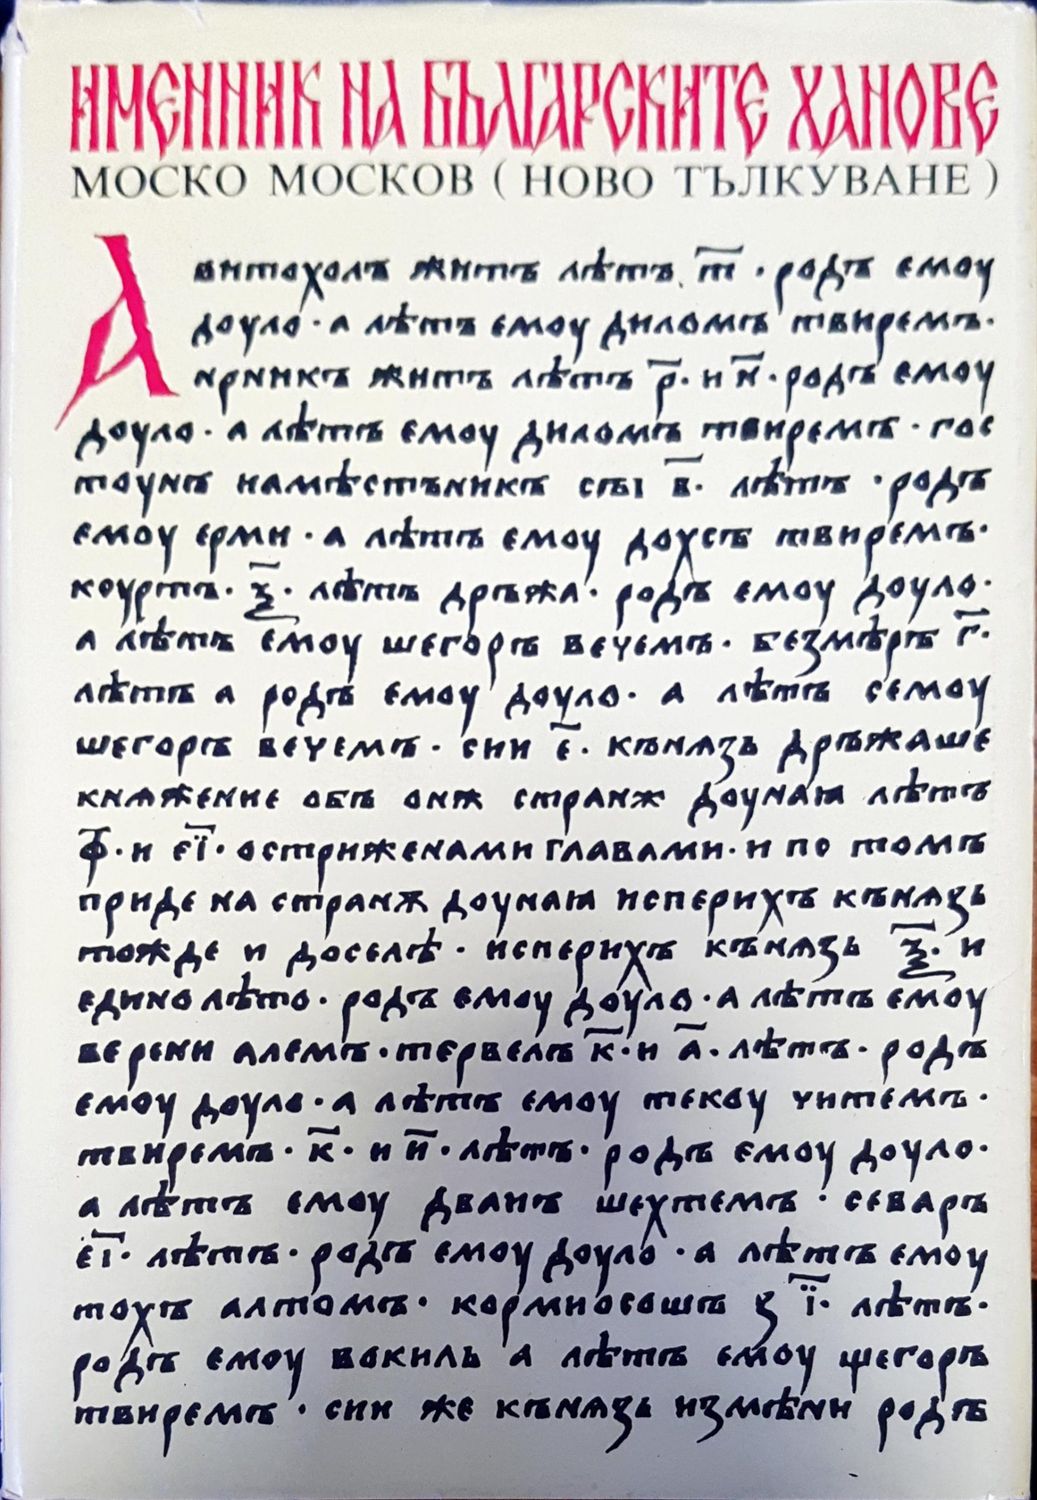 ИМЕННИК НА БЪЛГАРСКИТЕ ХАНОВЕ
МОСКО МОСКОВ ( НОВО ТЪЛКУВАНЕ )
Авитохолъ житъ лѣтъ т҃ · родъ ємоу
доуло · а лѣтъ ємоу диломъ твиремъ ·
ирникъ житъ лѣтъ р҃ · и н҃ · родъ ємоу
доуло · а лѣтъ ємоу диломъ твиремъ · гос
тоунъ намѣстъникъ сꙑ в҃ · лѣтъ · родъ
ємоу ерми · а лѣтъ ємоу дохсъ твиремъ ·
коуртъ · ѯ҃ · лѣтъ дръжа · родъ ємоу доуло ·
а лѣтъ ємоу шегоръ вечемъ · безмѣръ г҃ ·
лѣтъ а родъ ємоу доуло · а лѣтъ семоу
шегоръ вечемъ · сии є҃ · кънѧзь дръжаше
кнѧжение объ онѫ странѫ доунаꙗ лѣтъ
ф҃ · и єі҃ · остриженами главами · и по томъ
приде на странѫ доунаꙗ исперихъ кънѧзь
тожде и доселѣ · исперихъ кънѧзь ѯ҃ · и
єдино лѣто · родъ ємоу доуло · а лѣтъ ємоу
верени алемъ · тервелъ к҃ · и а҃ · лѣтъ · родъ
ємоу доуло · а лѣтъ ємоу текоу читемъ ·
твиремъ · к҃ · и и҃ · лѣтъ · родъ ємоу доуло ·
а лѣтъ ємоу дванъ шехтемъ · севаръ
єі҃ · лѣтъ · родъ ємоу доуло · а лѣтъ ємоу
тохъ алтомъ · кормисошъ з ї҃ · лѣтъ ·
родъ ємоу вокиль а лѣтъ ємоу шегоръ
твиремъ · сии же кънѧзь измѣни родъ